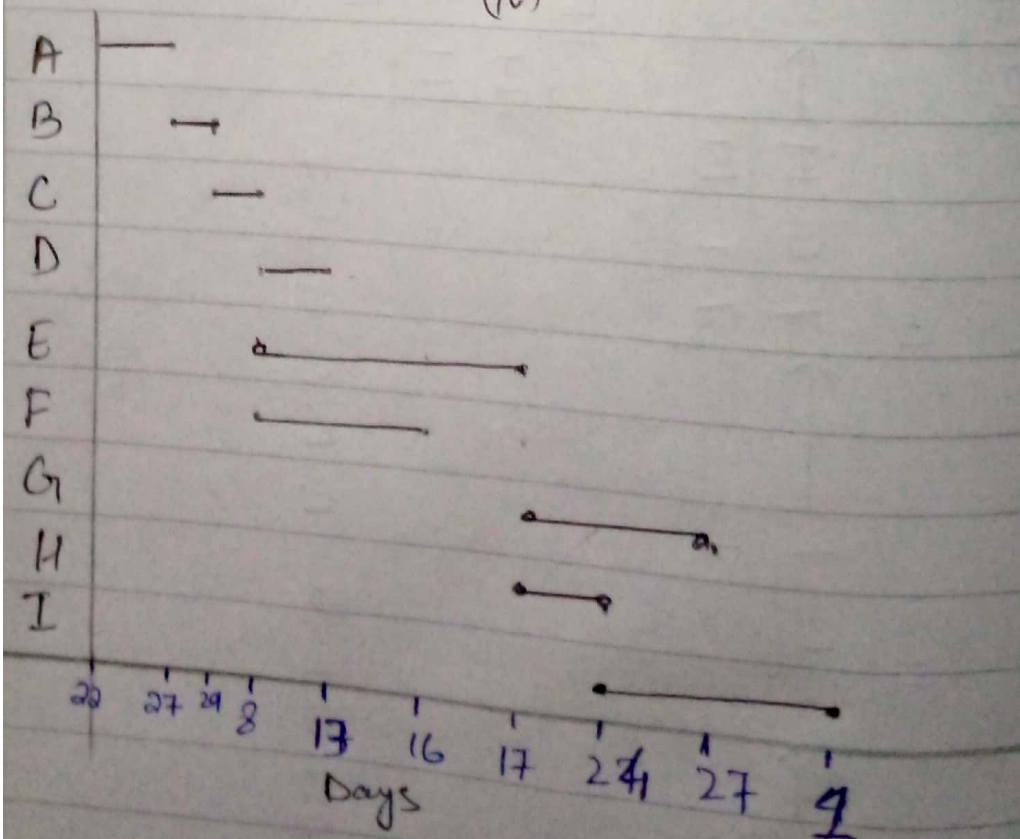 (iv)
A
B
C
D
E
F
G
H
I
22 27 29 8 17 16 17 24 27
Days